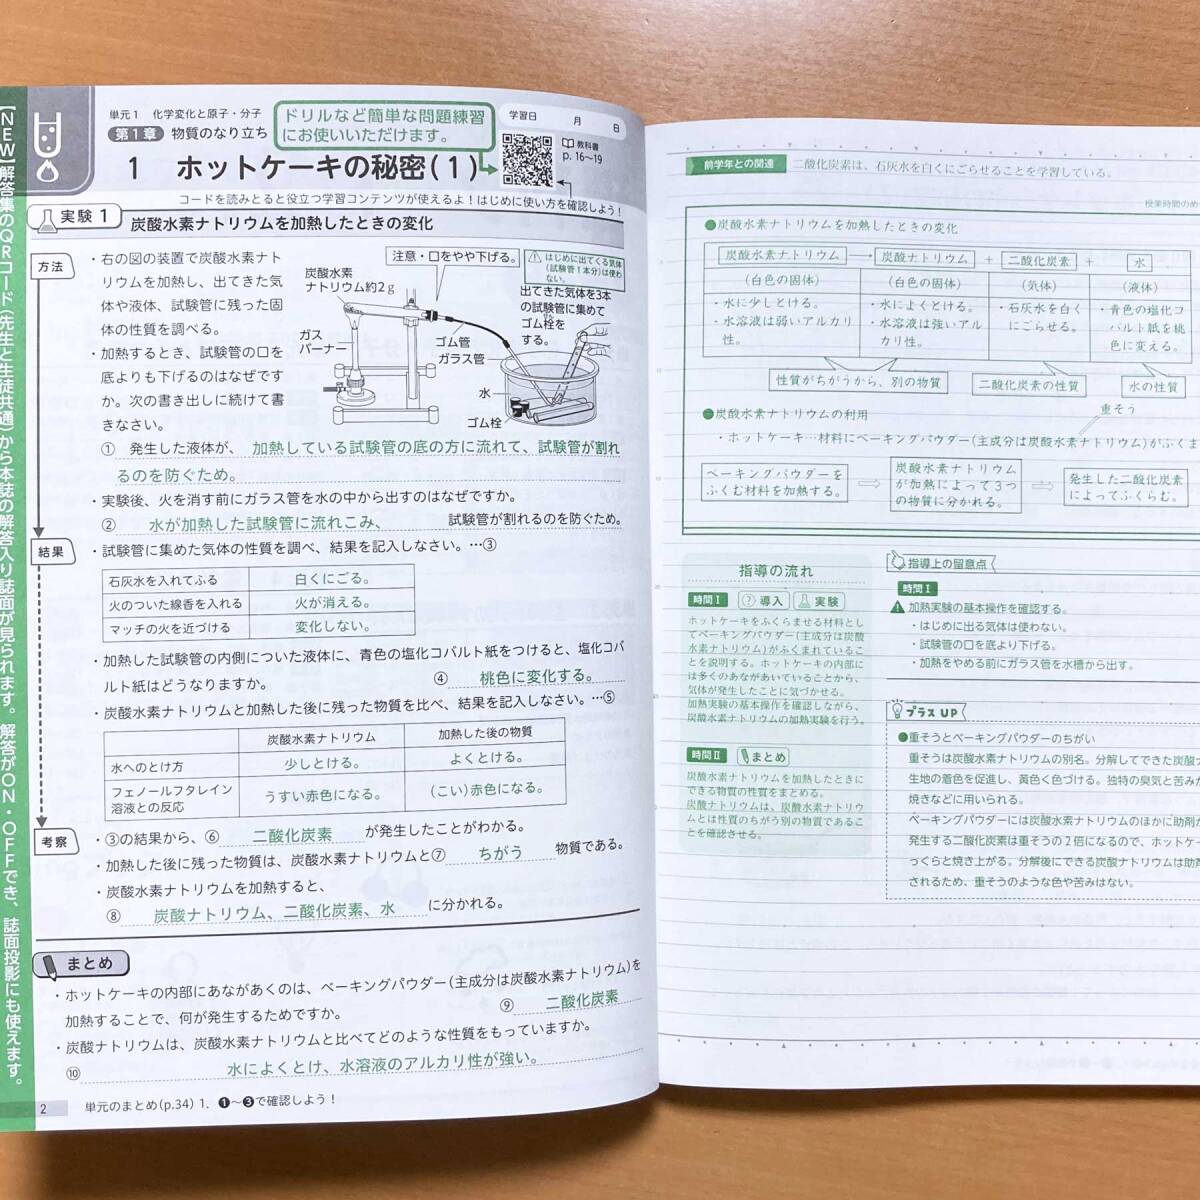 【NEW】解答集のQRコード(先生と生徒共通)から本誌の解答入り誌面が見られます。解答がON・OFFでき、誌面投影にも使えます。
単元1 化学変化と原子・分子
第1章 物質のなり立ち
ドリルなど簡単な問題練習
にお使いいただけます。
学習日 月 日
教科書
p. 16〜19
1 ホットケーキの秘密(1)
コードを読みとると役立つ学習コンテンツが使えるよ!はじめに使い方を確認しよう!
実験1 炭酸水素ナトリウムを加熱したときの変化
方法
・右の図の装置で炭酸水素ナト
リウムを加熱し、出てきた気
体や液体、試験管に残った固
体の性質を調べる。
・加熱するとき、試験管の口を
底よりも下げるのはなぜです
か。次の書き出しに続けて書
きなさい。
注意・口をやや下げる。
はじめに出てくる気体
(試験管1本分)は使わ
ない。
炭酸水素
ナトリウム約2g
出てきた気体を3本
の試験管に集めて
ゴム栓を
する。
ガス
バーナー
ゴム管
ガラス管
水
ゴム栓
① 発生した液体が、加熱している試験管の底の方に流れて、試験管が割れ
るのを防ぐため。
・実験後、火を消す前にガラス管を水の中から出すのはなぜですか。
② 水が加熱した試験管に流れこみ、 試験管が割れるのを防ぐため。
結果
・試験管に集めた気体の性質を調べ、結果を記入しなさい。…③
石灰水を入れてふる 白くにごる。
火のついた線香を入れる 火が消える。
マッチの火を近づける 変化しない。
・加熱した試験管の内側についた液体に、青色の塩化コバルト紙をつけると、塩化コバ
ルト紙はどうなりますか。 ④ 桃色に変化する。
・炭酸水素ナトリウムと加熱した後に残った物質を比べ、結果を記入しなさい。…⑤
炭酸水素ナトリウム 加熱した後の物質
水へのとけ方 少しとける。 よくとける。
フェノールフタレイン
溶液との反応 うすい赤色になる。 (こい)赤色になる。
考察
・③の結果から、⑥ 二酸化炭素 が発生したことがわかる。
・加熱した後に残った物質は、炭酸水素ナトリウムと⑦ ちがう 物質である。
・炭酸水素ナトリウムを加熱すると、
⑧ 炭酸ナトリウム、二酸化炭素、水 に分かれる。
まとめ
・ホットケーキの内部にあながあくのは、ベーキングパウダー(主成分は炭酸水素ナトリウム)を
加熱することで、何が発生するためですか。 ⑨ 二酸化炭素
・炭酸ナトリウムは、炭酸水素ナトリウムと比べてどのような性質をもっていますか。
⑩ 水によくとけ、水溶液のアルカリ性が強い。
2 単元のまとめ(p.34) 1. ❶〜❸で確認しよう!
前学年との関連 二酸化炭素は、石灰水を白くにごらせることを学習している。
授業時間のめ
●炭酸水素ナトリウムを加熱したときの変化
炭酸水素ナトリウム → 炭酸ナトリウム + 二酸化炭素 + 水
(白色の固体) (白色の固体) (気体) (液体)
・水に少しとける。
・水溶液は弱いアルカリ
性。
・水によくとける。
・水溶液は強いアル
カリ性。
・石灰水を白く
にごらせる。
・青色の塩化コ
バルト紙を桃
色に変える。
性質がちがうから、別の物質
二酸化炭素の性質
水の性質
●炭酸水素ナトリウムの利用
重そう
・ホットケーキ…材料にベーキングパウダー(主成分は炭酸水素ナトリウム)がふくま
ベーキングパウダーを
ふくむ材料を加熱する。
⇨
炭酸水素ナトリウム
が加熱によって3つ
の物質に分かれる。
⇨
発生した二酸化炭素
によってふくらむ。
指導の流れ
時間Ⅰ 導入 実験
ホットケーキをふくらませる材料とし
てベーキングパウダー(主成分は炭酸
水素ナトリウム)がふくまれているこ
とを説明する。ホットケーキの内部に
は多くのあながあいていることから、
気体が発生したことに気づかせる。
加熱実験の基本操作を確認しながら、
炭酸水素ナトリウムの加熱実験を行う。
時間Ⅱ まとめ
炭酸水素ナトリウムを加熱したときに
できる物質の性質をまとめる。
炭酸ナトリウムは、炭酸水素ナトリウ
ムとは性質のちがう別の物質であるこ
とを確認させる。
指導上の留意点
時間Ⅰ
加熱実験の基本操作を確認する。
・はじめに出る気体は使わない。
・試験管の口を底より下げる。
・加熱をやめる前にガラス管を水槽から出す。
プラスUP
●重そうとベーキングパウダーのちがい
重そうは炭酸水素ナトリウムの別名。分解してできた炭酸ナ
生地の着色を促進し、黄色く色づける。独特の臭気と苦みか
焼きなどに用いられる。
ベーキングパウダーには炭酸水素ナトリウムのほかに助剤が
発生する二酸化炭素は重そうの2倍になるので、ホットケー
っくらと焼き上がる。分解後にできる炭酸ナトリウムは助剤
されるため、重そうのような色や苦みはない。